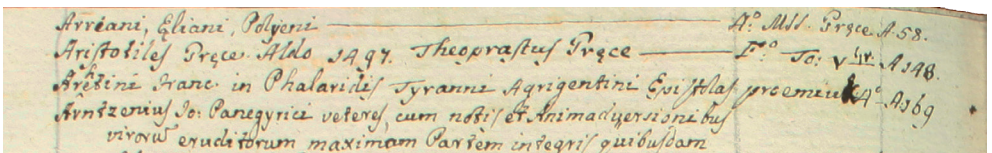 Arriani, Eliani, Polyeni — 4.º Mss. Gręce A 58.
Aristotiles Gręce Aldo 1497. Theoprastus Gręce — F.º To: V A 148.
Aretini Franc. in Phalaridis Tyranni Agrigentini Epistolas proemiu 4.º A 169
Arntzenius Jo: Panegyrici veteres, cum notis et Animadversionibus
viroru eruditorum maximam Partem integris quibusdam